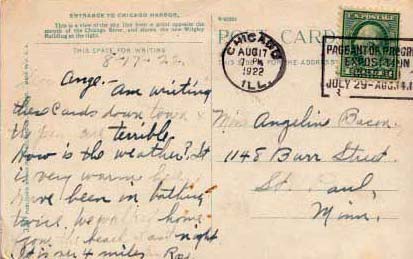 ENTRANCE TO CHICAGO HARBOR,
This is a view of the sky line from a point opposite the
mouth of the Chicago River, and shows the new Wrigley
Building at the right.
THIS SPACE FOR WRITING
8-17-22
Ange.- Am writing
these cards down town &
the pens are terrible.
How is the weather? It
is very warm here.
Have been in bathing
twice. We walked home
from the beach last night
It is over 4 miles. Ray
POST CARD
FOR THE ADDRESS
CHICAGO
AUG 17
7 PM
1922
ILL.
PAGEANT OF PROGRESS
EXPOSITION
JULY 29-AUG. 14.
Miss Angeline Bacon,
1148 Burr Street.
St. Paul,
Minn.